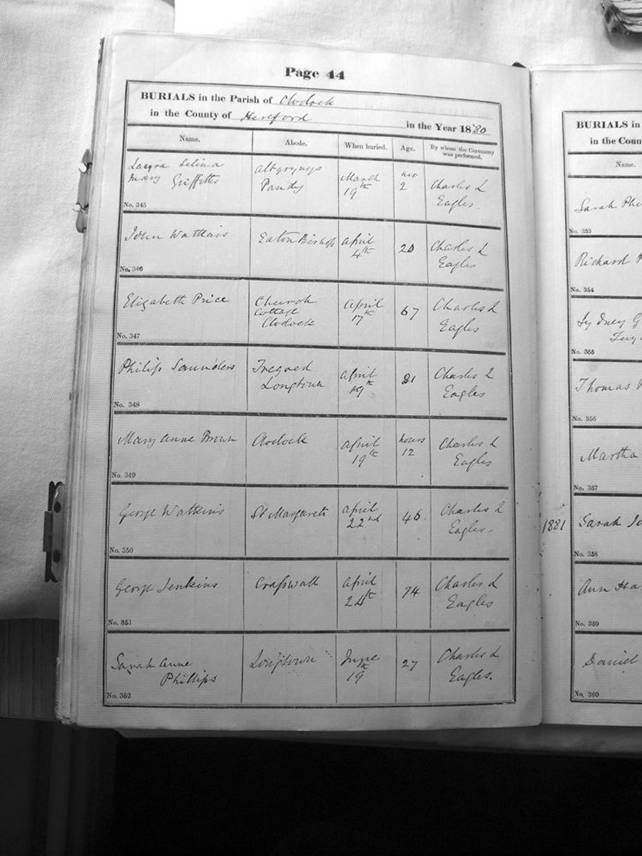 Page 44
BURIALS in the Parish of Clodock
in the County of Hereford in the Year 1880
Name. Abode. When buried. Age. By whom the Ceremony was performed.
Laura Selina
Mary Griffiths
Pandy
March
19th
2
Charles L
Eagles.
No. 345
John Watkins
Eaton Bishop
April
4th
20
Charles L
Eagles.
No. 346
Elizabeth Price
Church
Cottage
Clodock
April
17th
67
Charles L
Eagles
No. 347
Philip Saunders
Tregoed
Longtown
April
19th
81
Charles L
Eagles
No. 348
Mary Anne Brown
Clodock
April
19th
hours
12
Charles L
Eagles
No. 349
George Watkins
St Margarets
April
22nd
46
Charles L
Eagles.
No. 350
George Jenkins
Craswall
April
24th
74
Charles L
Eagles
No. 351
Sarah Anne
Phillips
Longtown
June
19th
27
Charles L
Eagles.
No. 352
BURIALS in
in the Coun
Name.
Sarah Phi
No. 353
Richard P
No. 354
Sydney G
No. 355
Thomas P
No. 356
Martha
No. 357
1881
Sarah J
No. 358
Ann Ha
No. 359
Daniel
No. 360